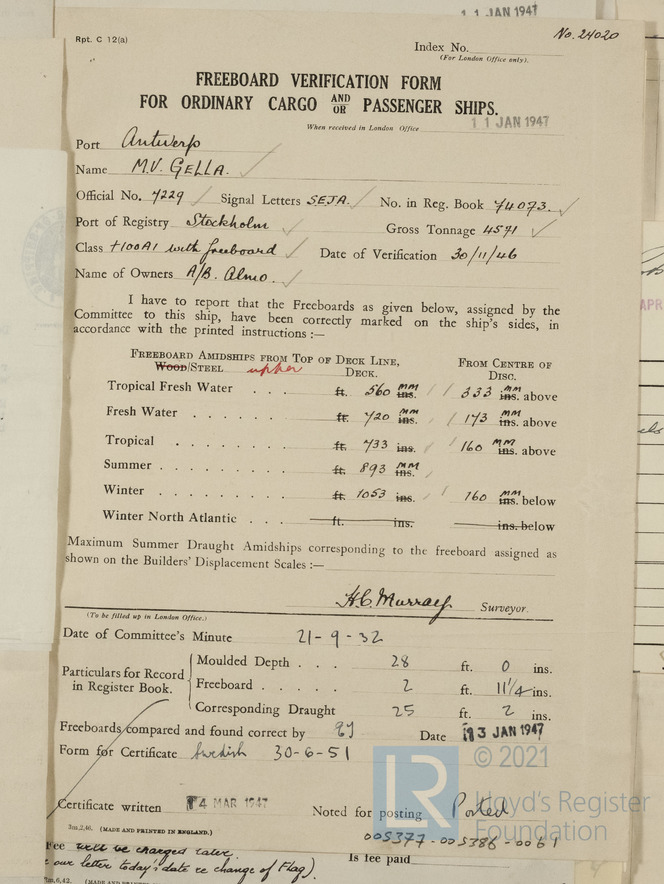 11 JAN 1947
Rpt. C 12(a)
No. 24020
Index No.
(For London Office only).
FREEBOARD VERIFICATION FORM
FOR ORDINARY CARGO AND/OR PASSENGER SHIPS.
When received in London Office 11 JAN 1947
Port Antwerp
Name M.V. GELLA.
Official No. 7229 Signal Letters SEJA. No. in Reg. Book 74073.
Port of Registry Stockholm Gross Tonnage 4591
Class +100A1 with freeboard Date of Verification 30/11/46
Name of Owners A/B. Almo.
I have to report that the Freeboards as given below, assigned by the
Committee to this ship, have been correctly marked on the ship's sides, in
accordance with the printed instructions :—
FREEBOARD AMIDSHIPS FROM TOP OF DECK LINE, FROM CENTRE OF
WOOD/STEEL upper DECK. DISC.
Tropical Fresh Water . . . ft. 560 mm ins. 333 mm ins. above
Fresh Water . . . . . . ft. 720 mm ins. 173 mm ins. above
Tropical . . . . . . . ft. 733 ins. 160 mm ins. above
Summer . . . . . . . . ft. 893 mm ins.
Winter . . . . . . . . ft. 1053 ins. 160 mm ins. below
Winter North Atlantic . . . ft. ins. ins. below
Maximum Summer Draught Amidships corresponding to the freeboard assigned as
shown on the Builders' Displacement Scales :—
H.C. Murray Surveyor.
(To be filled up in London Office.)
Date of Committee's Minute 21-9-32
Particulars for Record in Register Book.
Moulded Depth . . . 28 ft. 0 ins.
Freeboard . . . . . 2 ft. 11 1/4 ins.
Corresponding Draught 25 ft. 2 ins.
Freeboards compared and found correct by Date 13 JAN 1947
Form for Certificate Swedish 30-6-51
© 2021
LR
Lloyd's Register
Foundation
Certificate written 14 MAR 1947 Noted for posting Posted
3m,2,46. (MADE AND PRINTED IN ENGLAND.)
005377-005386-0061
Fee will be charged later
Is fee paid
our letter today's date re change of Flag).
m,6,42. (MADE AND PRINTED IN ENGLAND.)
APR